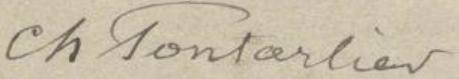 Ch Pontarlier